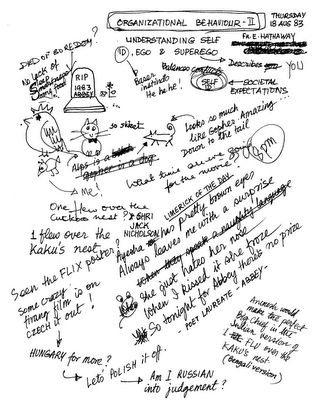 ORGANIZATIONAL BEHAVIOUR - II
THURSDAY
18 AUG 83
UNDERSTANDING SELF
Fr. E. HATHAWAY
DIED OF BOREDOM?
ID, EGO & SUPEREGO
No lack of
Balances
Describes
YOU
RIP
1983
ABBEY
Baser
instincts
He he he!
SELF
SOCIETAL
EXPECTATIONS...
so sweet
Looks so much
like gopher. Amazing.
Down to the tail
Alps is a
gopher is a dog
Me!
What time are we going
for the movie?
6pm
One flew over the
Cuckoo nest?
SHRI
JACK
NICHOLSON
LIMERICK OF THE DAY
1 flew over the
KAKU's nest
Ayesha has pretty brown eyes
Always leaves me with a surprise
She just hates her nose
When I kissed it she froze
So tonight for Abbey there's no prize
- POET LAUREATE - ABBEY -
Seen the FLIX poster?
Some crazy
film is on!
CZECH it out!
HUNGARY for more?
Lets' POLISH it off.
Am I RUSSIAN
into judgement?
Animesh would
make the perfect
Big Chief in the
Indian version of
1 Flew over the
KAKU's nest.
(Bengali version)